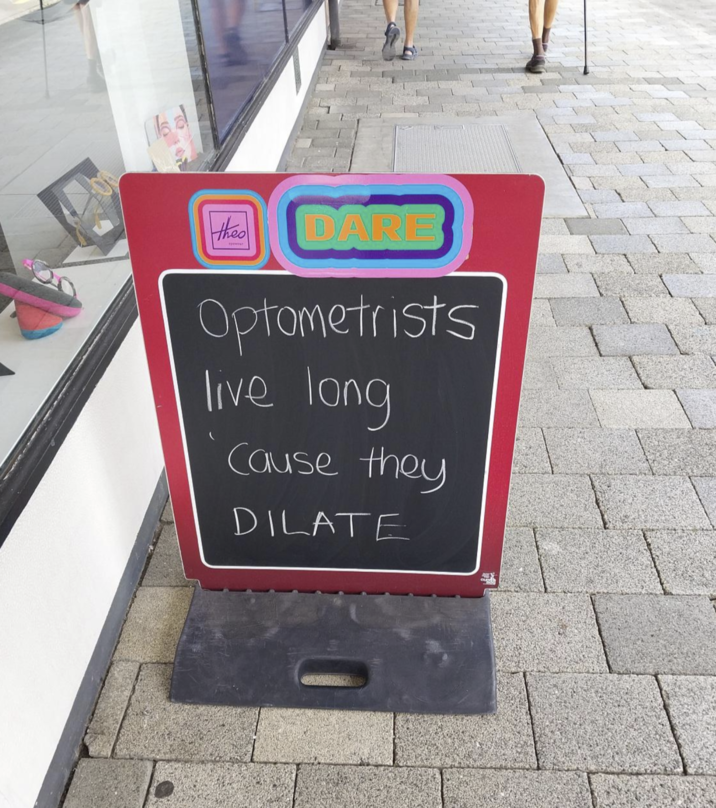 theo
DARE
Optometrists
live long
'cause they
DILATE